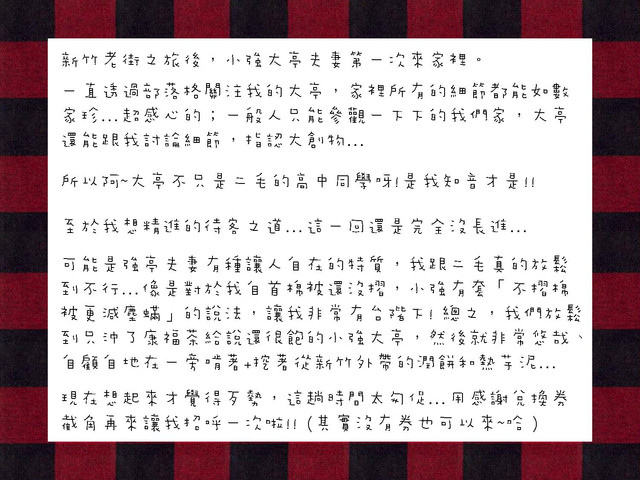 新竹老街之旅後，小強大亭夫妻第一次來家裡。
一直透過部落格關注我的大亭，家裡所有的細節都能如數
家珍...超感心的；一般人只能參觀一下下的我們家，大亭
還能跟我討論細節，指認大創物...
所以阿~大亭不只是二毛的高中同學呀!是我知音才是!!
至於我想精進的待客之道...這一回還是完全沒長進...
可能是強亭夫妻有種讓人自在的特質，我跟二毛真的放鬆
到不行...像是對於我自首棉被還沒摺，小強有套「不摺棉
被更減塵蟎」的說法，讓我非常有台階下!總之，我們放鬆
到只沖了康福茶給說還很飽的小強大亭，然後就非常悠哉、
自顧自地在一旁啃著+挖著從新竹外帶的潤餅和熱芋泥...
現在想起來才覺得歹勢，這趟時間太匆促...用感謝兌換券
截角再來讓我招呼一次啦!!（其實沒有券也可以來~哈）